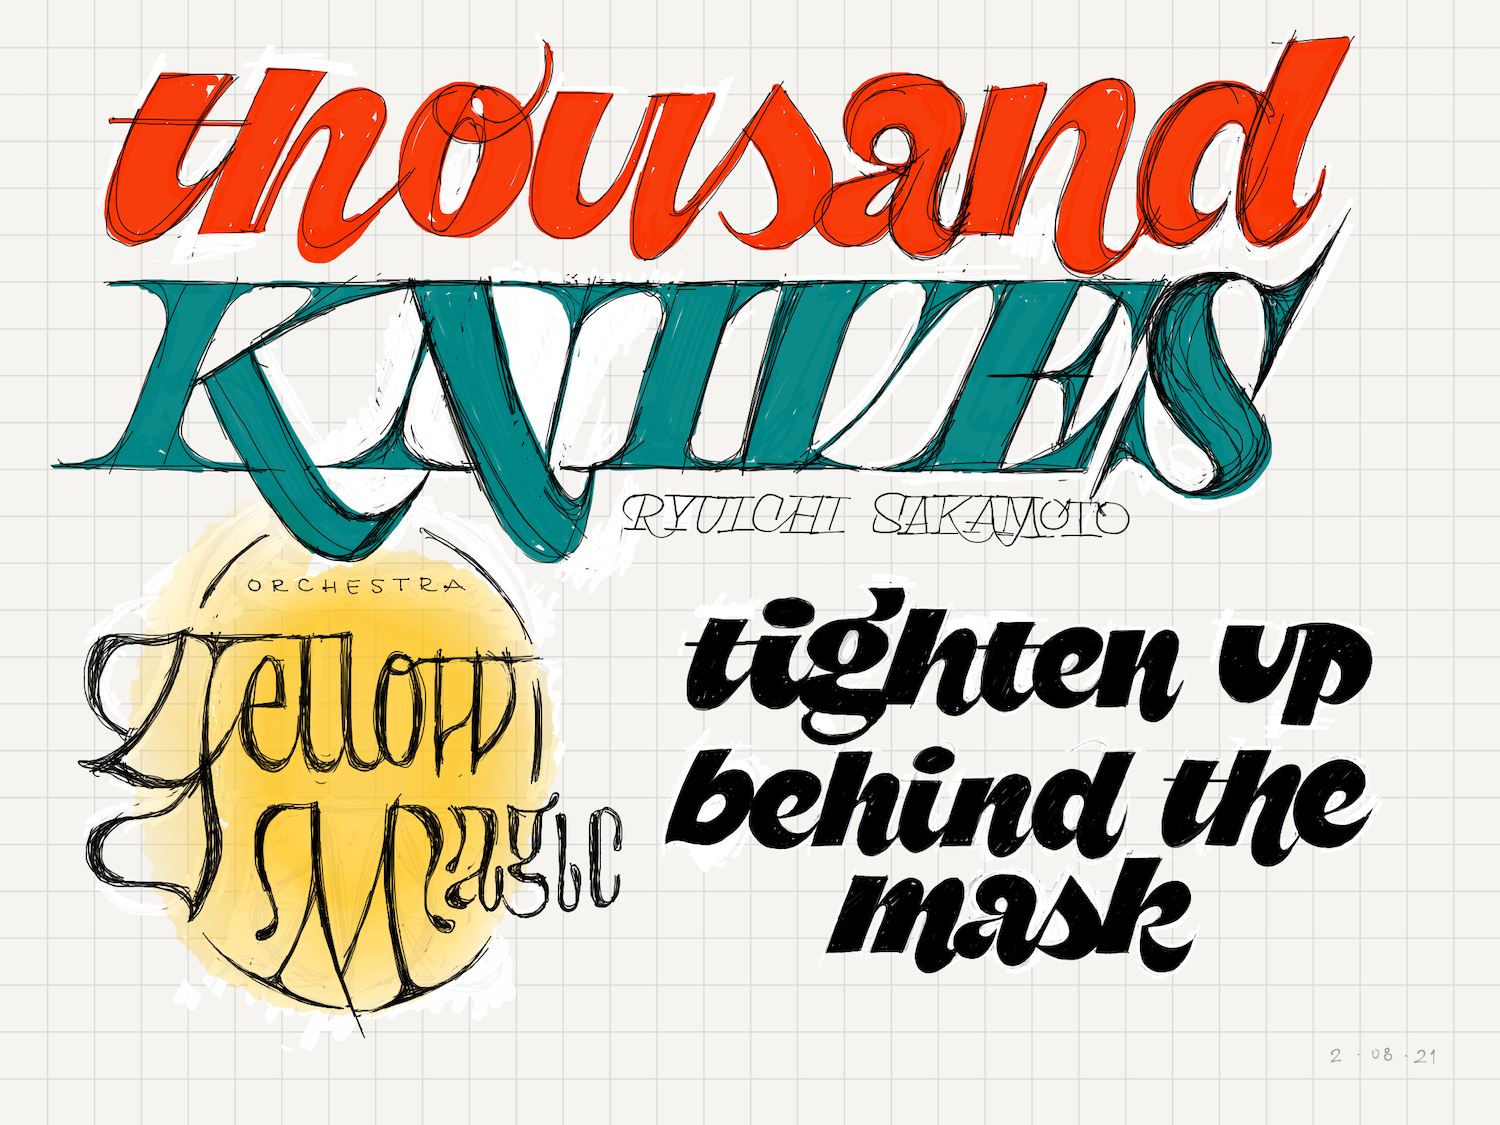 thousand
KNIVES
RYUICHI SAKAMOTO
ORCHESTRA
Yellow
Magic
tighten up
behind the
mask
2 · 08 · 21